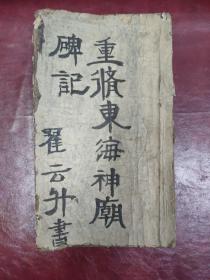 重脩東海神廟
碑記
翟云升書